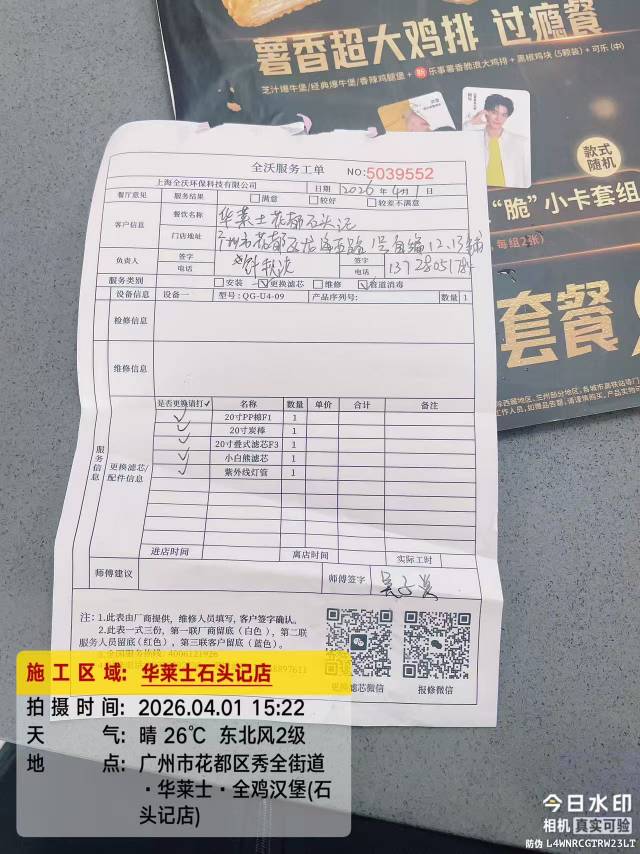 薯香超大鸡排 过瘾餐
芝汁爆牛堡/经典爆牛堡/香辣鸡腿堡 + 乐事薯香脆浪大鸡排 + 黑椒鸡块(5颗装) + 可乐(中)
款式
随机
“脆”小卡套组
每组2张
套餐
全沃服务工单 NO:5039552
上海全沃环保科技有限公司 日期 2026年4月1日
餐厅意见 服务结果 □满意 □较好 □较差不满意
客户信息 餐饮名称 华莱士花都石头记
门店地址 广州市花都区
负责人 签字 电话 签字 电话
服务类别 □安装 ☑更换滤芯 □维修 ☑管道消毒
设备信息 设备一 型号:QG-U4-09 产品序列号: 数量 1
检修信息
维修信息
服务信息
更换滤芯/配件信息
是否更换请打✓ 名称 数量 单价 合计 备注
✓ 20寸PP棉F1 1
✓ 20寸炭棒 1
✓ 20寸叠式滤芯F3 1
✓ 小白熊滤芯 1
✓ 紫外线灯管 1
进店时间 离店时间 实际工时
师傅建议 师傅签字
注:1.此表由厂商提供,维修人员填写,客户签字确认。
2.此表一式三份,第一联厂商留底(白色),第二联
服务人员留底(红色),第三联客户留底(蓝色)。
更换滤芯微信 报修微信
施工区域: 华莱士石头记店
拍摄时间: 2026.04.01 15:22
天气: 晴 26℃ 东北风2级
地点: 广州市花都区秀全街道
·华莱士·全鸡汉堡(石
头记店)
今日水印
相机 真实可验
防伪 L4WNRCGTRW23LT